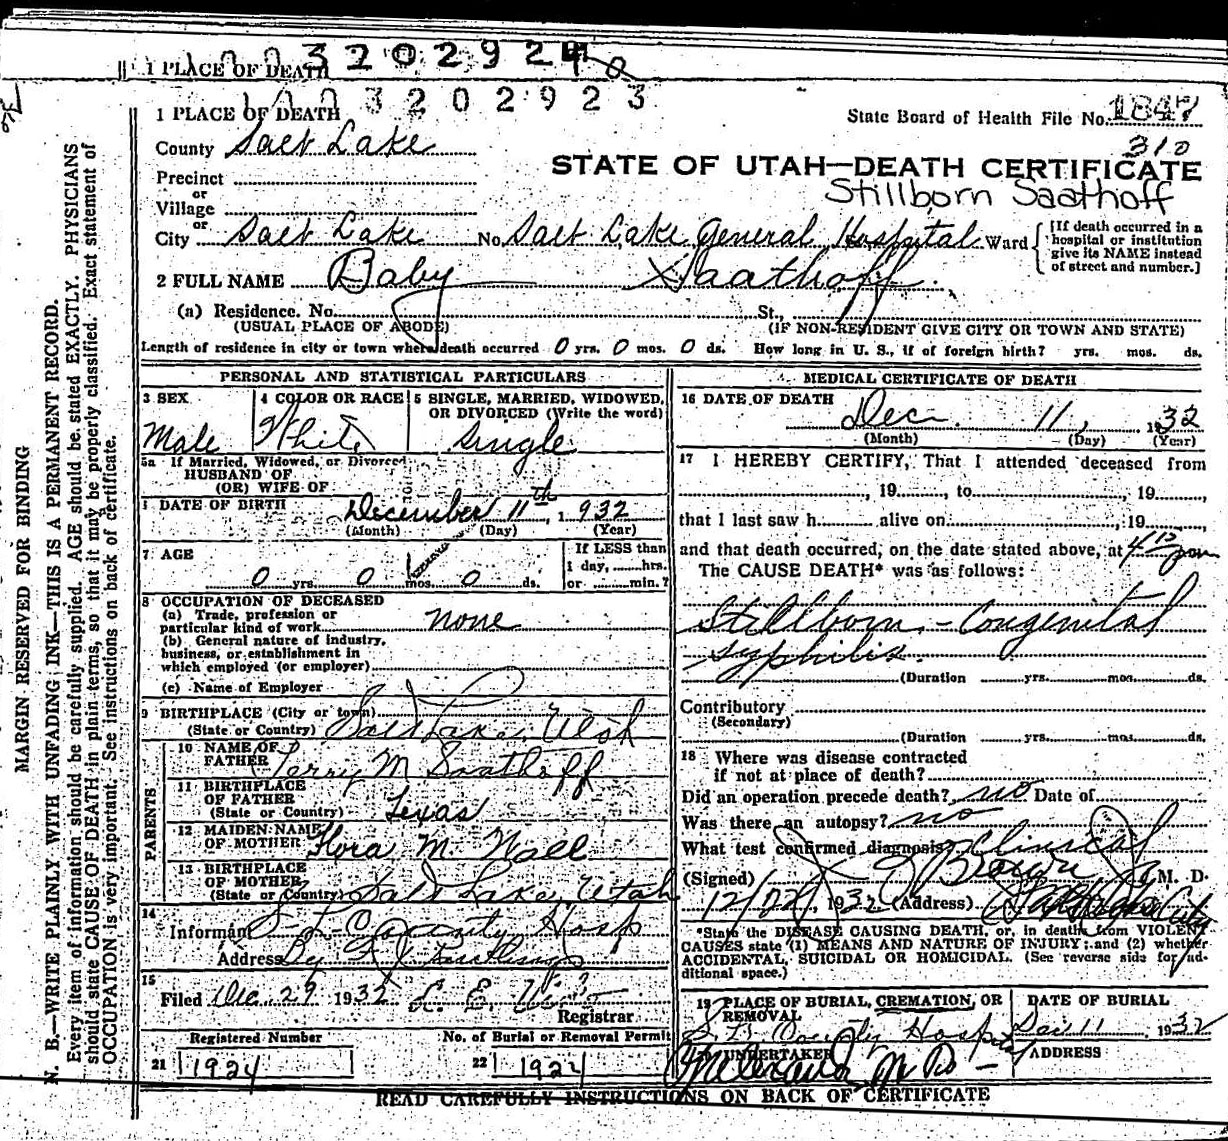 1 PLACE OF DEATH 3202924
1 PLACE OF DEATH 1003202923
State Board of Health File No. 1847
310
County Salt Lake
STATE OF UTAH—DEATH CERTIFICATE
Stillborn Saathoff
Precinct
or
Village
or
City Salt Lake No. Salt Lake General Hospital Ward
[If death occurred in a hospital or institution give its NAME instead of street and number.]
2 FULL NAME Baby Saathoff
(a) Residence. No. St.,
(USUAL PLACE OF ABODE) (IF NON-RESIDENT GIVE CITY OR TOWN AND STATE)
Length of residence in city or town where death occurred 0 yrs. 0 mos. 0 ds. How long in U. S., if of foreign birth? yrs. mos. ds.
PERSONAL AND STATISTICAL PARTICULARS
3 SEX 4 COLOR OR RACE 5 SINGLE, MARRIED, WIDOWED,
OR DIVORCED (Write the word)
Male White Single
5a If Married, Widowed, or Divorced
HUSBAND OF
(OR) WIFE OF
DATE OF BIRTH December 11th, 1932
(Month) (Day) (Year)
7 AGE If LESS than
1 day, hrs.
0 yrs. 0 mos. 0 ds. or min.?
8 OCCUPATION OF DECEASED
(a) Trade, profession or
particular kind of work none
(b) General nature of industry,
business, or establishment in
which employed (or employer)
(c) Name of Employer
9 BIRTHPLACE (City or town)
(State or Country) Salt Lake, Utah
PARENTS
10 NAME OF
FATHER M Saathoff
11 BIRTHPLACE
OF FATHER
(State or Country) Texas
12 MAIDEN NAME
OF MOTHER Flora M.
13 BIRTHPLACE
OF MOTHER
(State or Country) Salt Lake, Utah
14
Informant S L County Hosp
Address By
15
Filed Dec 29 1932 L. E.
Registrar
Registered Number No. of Burial or Removal Permit
21 1924 22 1924
MEDICAL CERTIFICATE OF DEATH
16 DATE OF DEATH
Dec. 11, 1932
(Month) (Day) (Year)
17 I HEREBY CERTIFY, That I attended deceased from
, 19 , to , 19 ,
that I last saw h alive on , 19 ,
and that death occurred, on the date stated above, at
The CAUSE DEATH* was as follows:
Stillborn - Congenital
syphilis.
(Duration yrs. mos. ds.
Contributory
(Secondary)
(Duration yrs. mos. ds.
18 Where was disease contracted
if not at place of death?
Did an operation precede death? no Date of
Was there an autopsy? no
What test confirmed diagnosis? Clinical
(Signed) M. D.
12/22, 1932 (Address)
*State the DISEASE CAUSING DEATH, or, in deaths from VIOLENT
CAUSES state (1) MEANS AND NATURE OF INJURY; and (2) whether
ACCIDENTAL, SUICIDAL OR HOMICIDAL. (See reverse side for additional space.)
19 PLACE OF BURIAL, CREMATION, OR REMOVAL DATE OF BURIAL
S. L. County Hospital Dec 11 1932
UNDERTAKER ADDRESS
READ CAREFULLY INSTRUCTIONS ON BACK OF CERTIFICATE
MARGIN RESERVED FOR BINDING
N. B.—WRITE PLAINLY WITH UNFADING INK—THIS IS A PERMANENT RECORD.
Every item of information should be carefully supplied. AGE should be stated EXACTLY. PHYSICIANS
should state CAUSE OF DEATH in plain terms, so that it may be properly classified. Exact statement of
OCCUPATION is very important. See instructions on back of certificate.